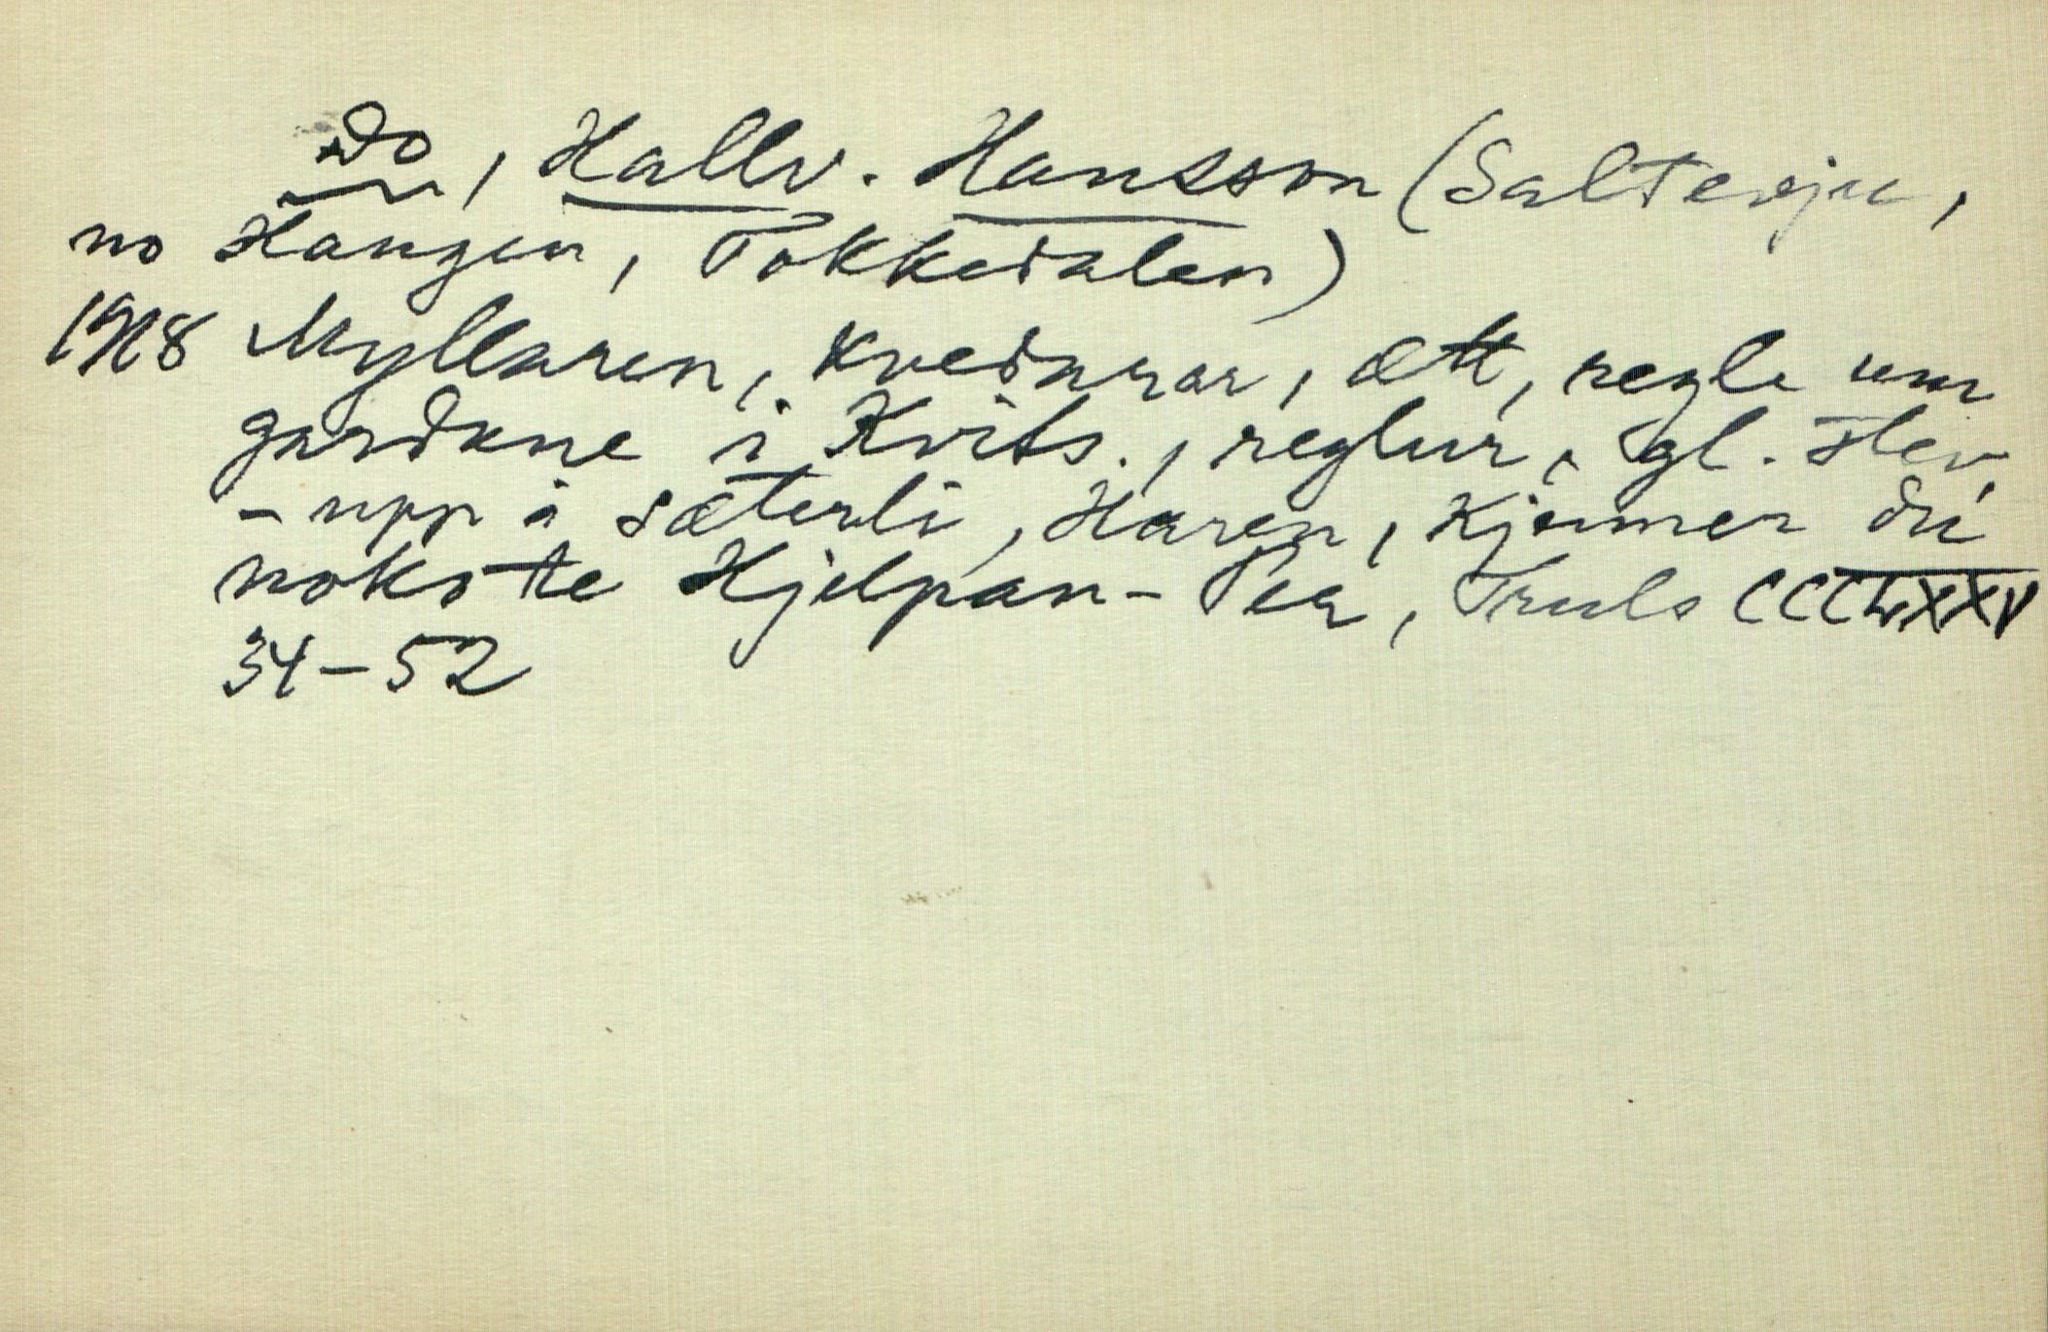 Do, Hallv. Hansson (Salterøju,
no Haugen, Tokkedalen)
1918 Myllaren, kvedarar, ætt, regle um
gardane i Kvits., reglur, gl. stev,
- upp i sæterli, Haren, Kjenner du
nokste Hjelpan-Per, Truls CCCLXXV
34-52